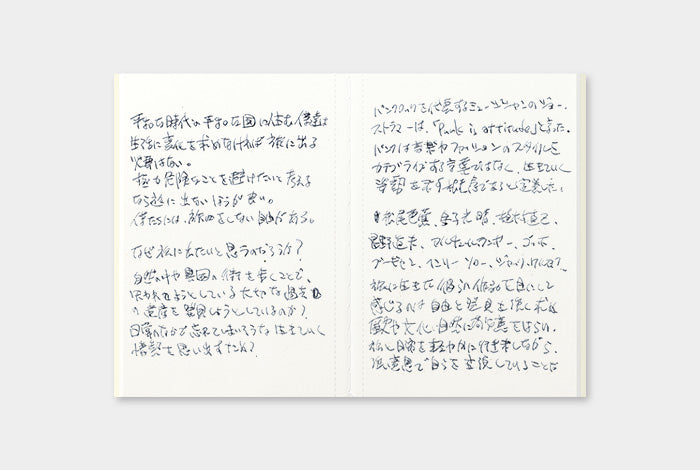 平和な時代の平和な国に住む僕達は
生活に変化を求めなければ旅に出る
必要はない。
極力危険なことを避けたいと考える
なら旅に出ないほうが良い。
僕たちには、旅をしない自由がある。
なぜ旅に出たいと思うのだろうか？
自然の中や異国の街を歩くことで、
失われようとしている大切な過去
の遺産を発見しようとしているのか？
日常のなかで忘れてしまいそうな生きていく
姿勢を思い出すため？
パンクロックを代表するミュージシャンのジョー・
ストラマーは、「Punk is attitude」と言った。
パンクは音楽やファッションのスタイルを
カテゴライズする言葉ではなく、生きていく
姿勢を示す態度であると定義した。
松尾芭蕉、金子光晴、植村直己、
星野道夫、
ヘンリー・ソロー、ジャック
旅に生きた彼らの作品を目にして
感じるのは自由と発見を強く求め
歴史や文化、自然に敬意をはらい、
旅と日常を軽やかに往来しながら、
強い意思で自らを変換していることだ